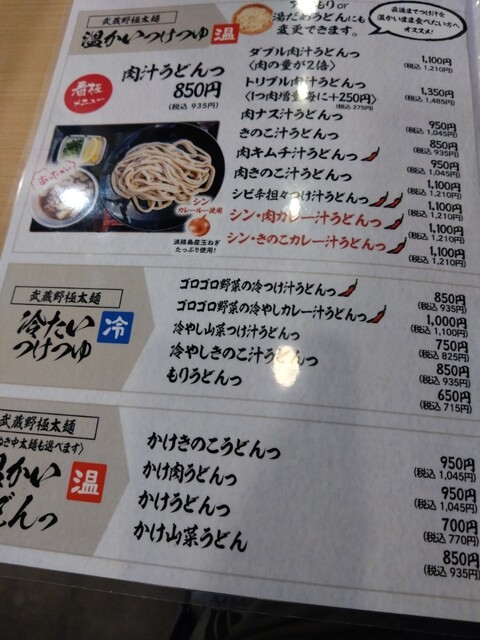 武蔵野極太麺
温かいつけつゆ 温
湯だめうどんにも
変更できます。
最後までつけ汁を
温かいまま食べたい方へ
オススメ!
看板
メニュー
肉汁うどんっ
850円
(税込 935円)
シン
カレールー使用
淡路島産玉ねぎ
たっぷり使用!
ダブル肉汁うどんっ 1,100円
〈肉の量が2倍〉 (税込 1,210円)
トリプル肉汁うどんっ 1,350円
〈1つ肉増量毎に+250円〉 (税込 1,485円)
(税込 275円)
肉ナス汁うどんっ 950円
(税込 1,045円)
きのこ汁うどんっ 850円
(税込 935円)
肉キムチ汁うどんっ 950円
(税込 1,045円)
肉きのこ汁うどんっ 1,100円
(税込 1,210円)
シビ辛担々つけ汁うどんっ 1,100円
(税込 1,210円)
シン・肉カレー汁うどんっ 1,100円
(税込 1,210円)
シン・きのこカレー汁うどんっ 1,100円
(税込 1,210円)
武蔵野極太麺
冷たい 冷
つけつゆ
ゴロゴロ野菜の冷つけ汁うどんっ 850円
(税込 935円)
ゴロゴロ野菜の冷やしカレー汁うどんっ 1,000円
(税込 1,100円)
冷やし山菜つけ汁うどんっ 750円
(税込 825円)
冷やしきのこ汁うどんっ 850円
(税込 935円)
もりうどんっ 650円
(税込 715円)
武蔵野極太麺
ぬき中太麺も選べます〉
温かい 温
どんっ
かけきのこうどんっ 950円
(税込 1,045円)
かけ肉うどんっ 950円
(税込 1,045円)
かけうどんっ 700円
(税込 770円)
かけ山菜うどん 850円
(税込 935円)